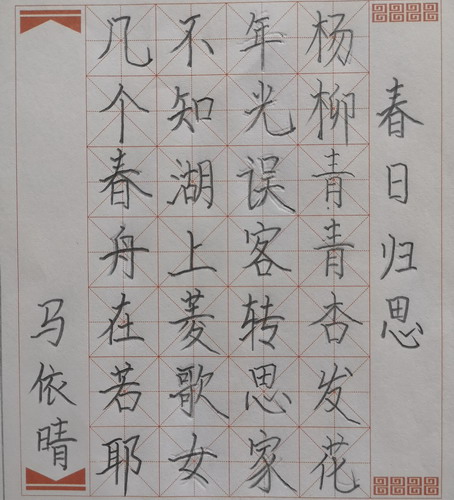 春日归思
杨柳青青杏发花
年光误客转思家
不知湖上菱歌女
几个春舟在若耶
马依晴